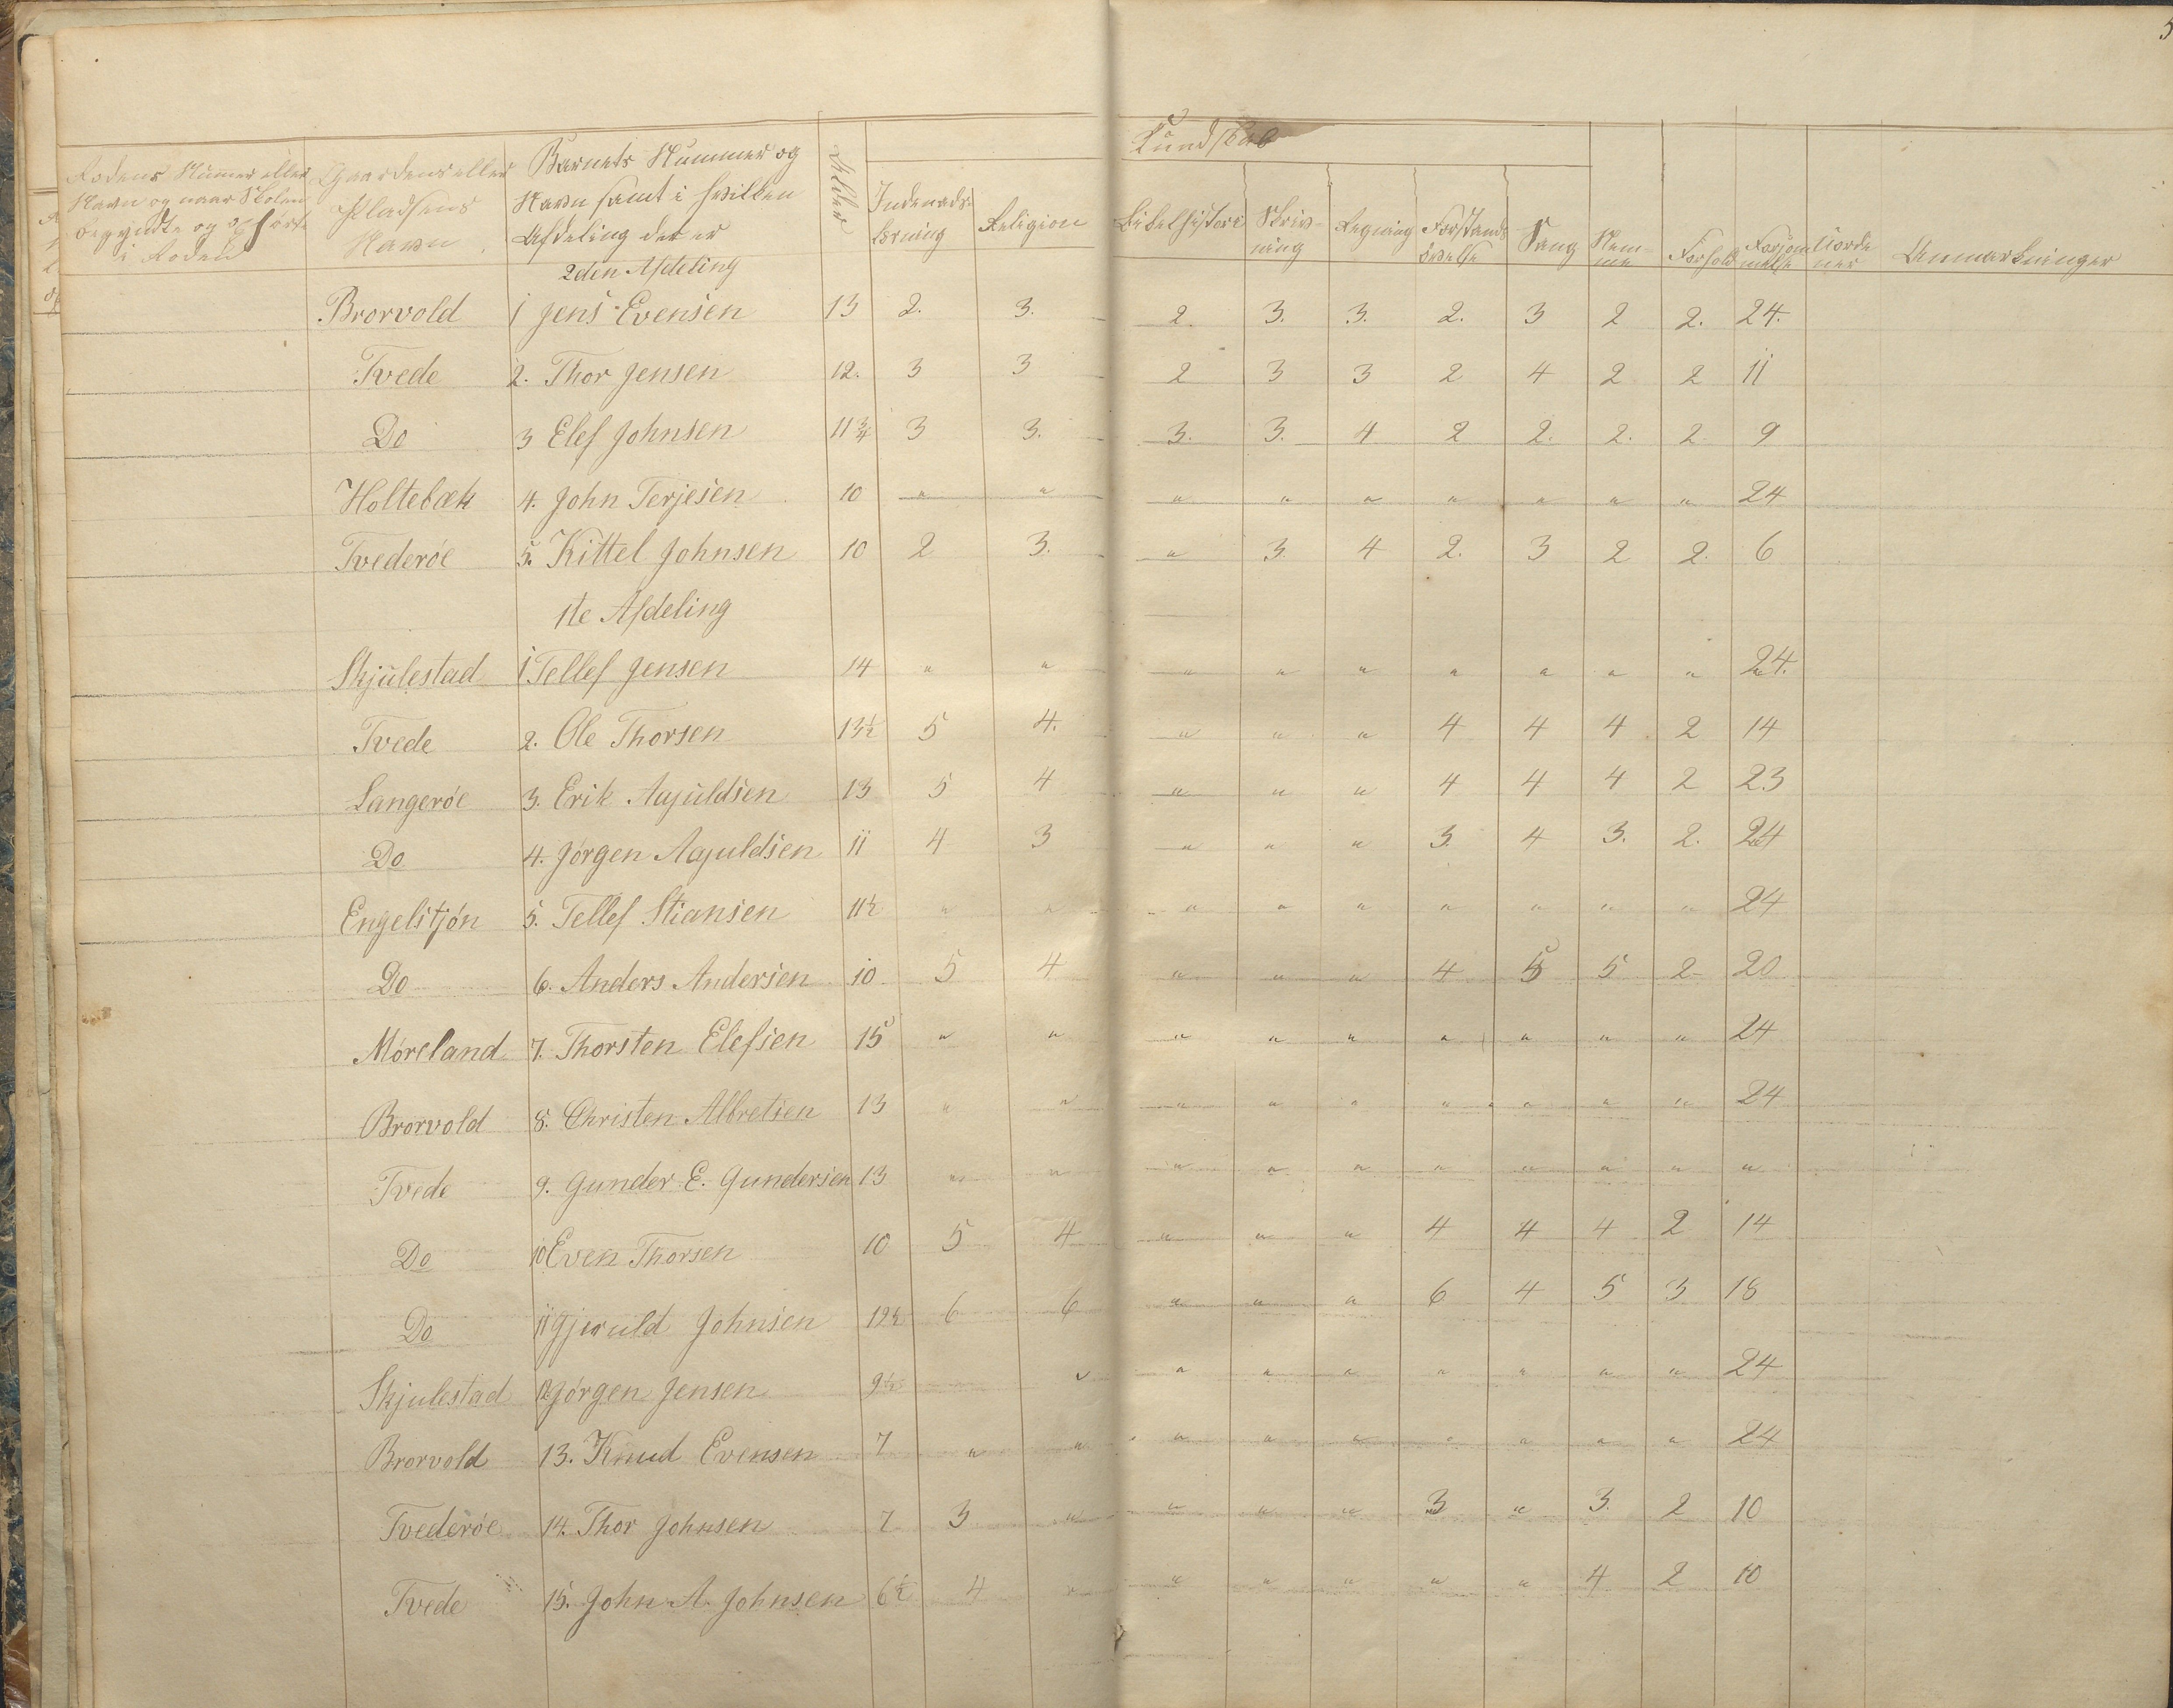 5
Kundskab
Rodens Numer eller Navn og naar Skolen begyndte og ophørte i Roden
Gaardens eller Pladsens Navn
Barnets Nummer og Navn samt i hvilken Afdeling det er
Alder
Indenads-læsning
Religion
Bibelhistorie
Skriv-ning
Regning
Forstands øvelse
Sang
Nem-me
Forhold
Forsøm melse
Anmærkninger
2den Afdeling
Brorvold 1 Jens Evensen 13 2. 3. 2. 3. 3. 2. 3 2 2. 24.
Tvede 2. Thor Jensen 12. 3 3 2 3 3 2 4 2 2 11
Do 3 Elef Johnsen 11¾ 3 3. 3. 3. 4 2 2. 2. 2 9
Holtebæk 4. John Terjesen 10 " " " " " " " " " 24
Tvederöe 5. Kittel Johnsen 10 2 3. " 3. 4 2. 3 2 2. 6
1te Afdeling
Skjulestad 1 Tellef Jensen 14 " " " " " " " " " 24.
Tvede 2. Ole Thorsen 13½ 5 4. " " " 4 4 4 2 14
Langeröe 3. Erik Aajuldsen 13 5 4 " " " 4 4 4 2 23
Do 4. Jörgen Aajuldsen 11 4 3 " " " 3. 4 3. 2. 24
Engelstjön 5. Tellef Stiansen 11½ " " " " " " " " " 24
Do 6. Anders Andersen 10 5 4 " " " 4 5 5 2 20
Möreland 7. Thorsten Elefsen 15 " " " " " " " " " 24
Brorvold 8. Christen Albretsen 13 " " " " " " " " " 24
Tvede 9. Gunder E. Gundersen 13 " " " " " " " " " "
Do 10 Even Thorsen 10 5 4 " " " 4 4 4 2 14
Do 11 Gjeruld Johnsen 12½ 6 6 " " " 6 4 5 3 18
Skjulestad 12 Jörgen Jensen 9½ " " " " " " " " 24
Brorvold 13. Knud Evensen 7 " " " " " " " " " 24
Tvederöe 14. Thor Johnsen 7 3 " " " " 3 " 3. 2 10
Tvede 15. John A. Johnsen 6½ 4 " " " " " " 4 2 10